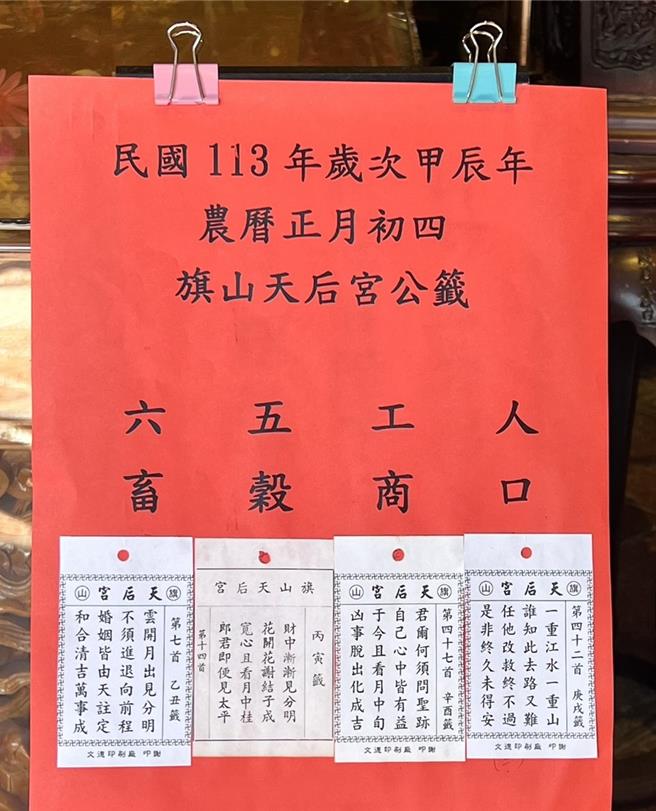 民國113年歲次甲辰年
農曆正月初四
旗山天后宮公籤
人口
工商
五穀
六畜
旗 天后宮 山
第四十二首 庚戌籤
一重江水一重山
誰知此去路又難
任他改救終不過
是非終久未得安
文遠印刷廠 叩謝
旗 天后宮 山
第四十七首 辛酉籤
君爾何須問聖跡
自己心中皆有益
于今且看月中旬
凶事脫出化成吉
文遠印刷廠 叩謝
旗山天后宮
丙寅籤
財中漸漸見分明
花開花謝結子成
寬心且看月中桂
郎君即便見太平
第十四首
旗 天后宮 山
第七首 乙丑籤
雲開月出見分明
不須進退向前程
婚姻皆由天註定
和合清吉萬事成
文遠印刷廠 叩謝